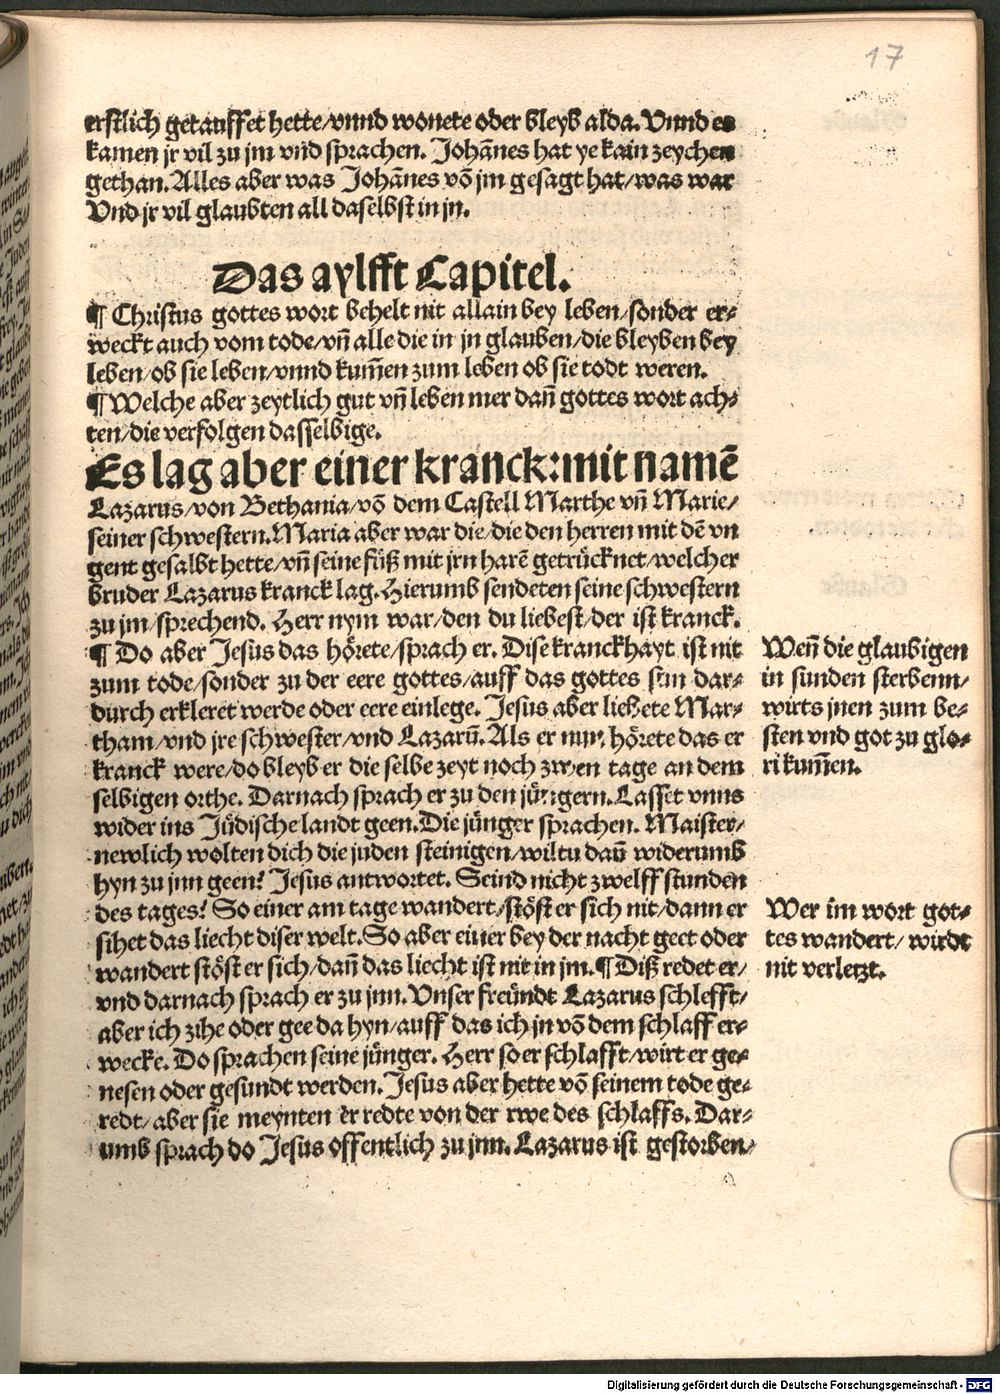 17
erstlich getauffet hette/vnnd wonete oder bleyb alda. Vnnd es
kamen jr vil zu jm vnd sprachen. Johānes hat ye kain zeychen
gethan. Alles aber was Johānes vō jm gesagt hat/was war
Vnd jr vil glaubten all daselbst in jn.
Das aylfft Capitel.
¶ Christus gottes wort behelt nit allain bey leben/sonder er⸗
weckt auch vom tode/vn̄ alle die in jn glauben/die bleyben bey
leben/ob sie leben/vnnd kum̄en zum leben ob sie todt weren.
¶ Welche aber zeytlich gut vn̄ leben mer dan̄ gottes wort ach⸗
ten/die verfolgen dasselbige.
Es lag aber einer kranck: mit namē
Lazarus/von Bethania/vō dem Castell Marthe vn̄ Marie/
seiner schwestern. Maria aber war die/die den herren mit dē vn
gent gesalbt hette/vn̄ seine füß mit jrn harē getrücknet/welcher
bruder Lazarus kranck lag. Hierumb sendeten seine schwestern
zu jm/sprechend. Herr nym war/den du liebest/der ist kranck.
¶ Do aber Jesus das hörete/sprach er. Dise kranckhayt ist nit
zum tode/sonder zu der eere gottes/auff das gottes sun dar⸗
durch erkleret werde oder eere einlege. Jesus aber liebete Mar⸗
tham/vnd jre schwester/vnd Lazarū. Als er nun hörete das er
kranck were/do bleyb er die selbe zeyt noch zwen tage an dem
selbigen orthe. Darnach sprach er zu den jüngern. Lasset vnns
wider ins Jüdische landt geen. Die jünger sprachen. Maister/
newlich wolten dich die juden steinigen/wiltu dan̄ widerumb
hyn zu jnn geen? Jesus antwortet. Seind nicht zwelff stunden
des tages? So einer am tage wandert/stöst er sich nit/dann er
sihet das liecht diser welt. So aber einer bey der nacht geet oder
wandert stöst er sich/dan̄ das liecht ist nit in jm. ¶ Diß redet er/
vnd darnach sprach er zu jnn. Vnser freündt Lazarus schlefft/
aber ich zihe oder gee da hyn/auff das ich jn vō dem schlaff er⸗
wecke. Do sprachen seine jünger. Herr so er schlafft/wirt er ge⸗
nesen oder gesundt werden. Jesus aber hette vō seinem tode ge⸗
redt/aber sie meynten er redte von der rwe des schlaffs. Dar⸗
umb sprach do Jesus offentlich zu jnn. Lazarus ist gestorben/
Wen̄ die glaubigen
in sunden sterbenn/
wirts jnen zum be⸗
sten vnd got zu glo⸗
ri kum̄en.
Wer im wort got⸗
tes wandert/wirdt
nit verletzt.
Digitalisierung gefördert durch die Deutsche Forschungsgemeinschaft - DFG